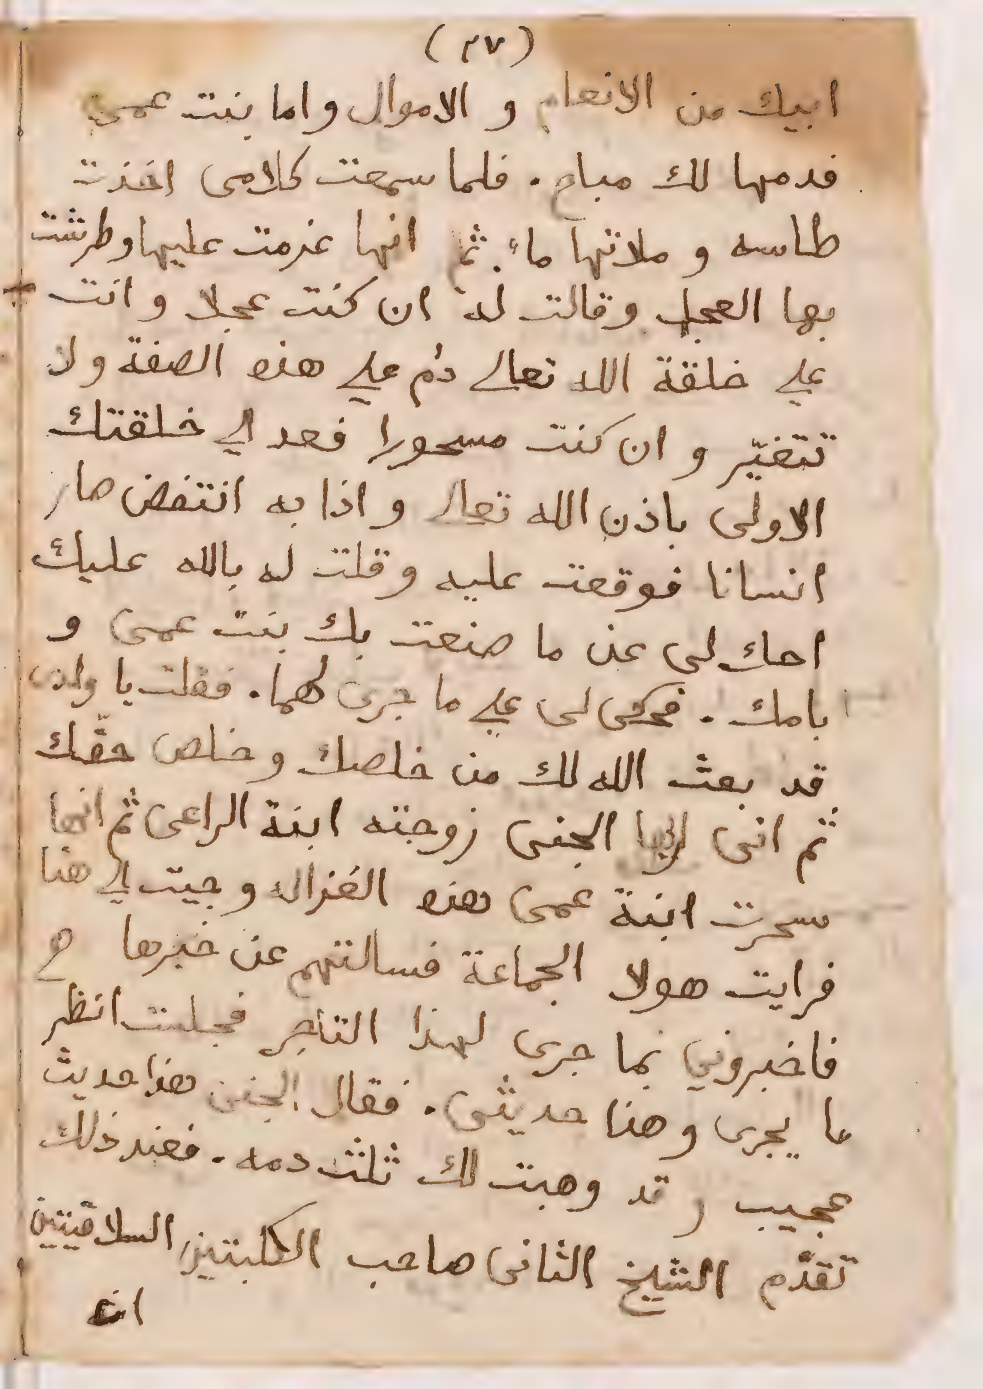 (٢٧)
ابيك من الانعام و الاموال واما بنت عمي
فدمها لك مباح . فلما سمعت كلامى اخذت
طاسه و ملاتها ماء . ثم انها عزمت عليها وطرشت
بها العجل وقالت له ان كنت عجلا وانت
على خلقة الله تعالى دُم على هذه الصفة ولا
تتغيّر و ان كنت مسحورا فعد الى خلقتك
الاولى باذن الله تعالى و اذا به انتفض صار
انسانا فوقعت عليه وقلت له بالله عليك
احك لى عن ما صنعت بك بنت عمى و
بامك . فحكى لى على ما جرى لهما . فقلت يا ولدى
قد بعث الله لك من خلصك وخلص حقّك
ثم انى ايها الجنى زوجته ابنة الراعى ثم انها
سحرت ابنة عمى هذه الغزاله وجيت الى هنا
فرايت هولا الجماعة فسالتهم عن خبرها
فاخبروني بما جرى لهذا التاجر فجلست انظر
ما يجرى وهذا حديثى . فقال الجنى هذا حديث
عجيب و قد وهبت لك ثلث دمه . فعند ذلك
تقدّم الشيخ الثانى صاحب الكلبتين السلاقيتين